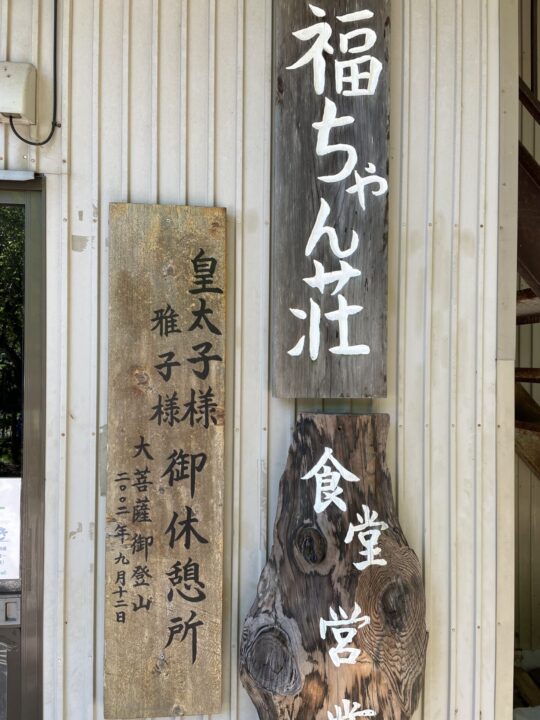 福ちゃん荘
食堂営業
皇太子様
雅子様
御休憩所
大菩薩御登山
二〇〇二年九月十二日